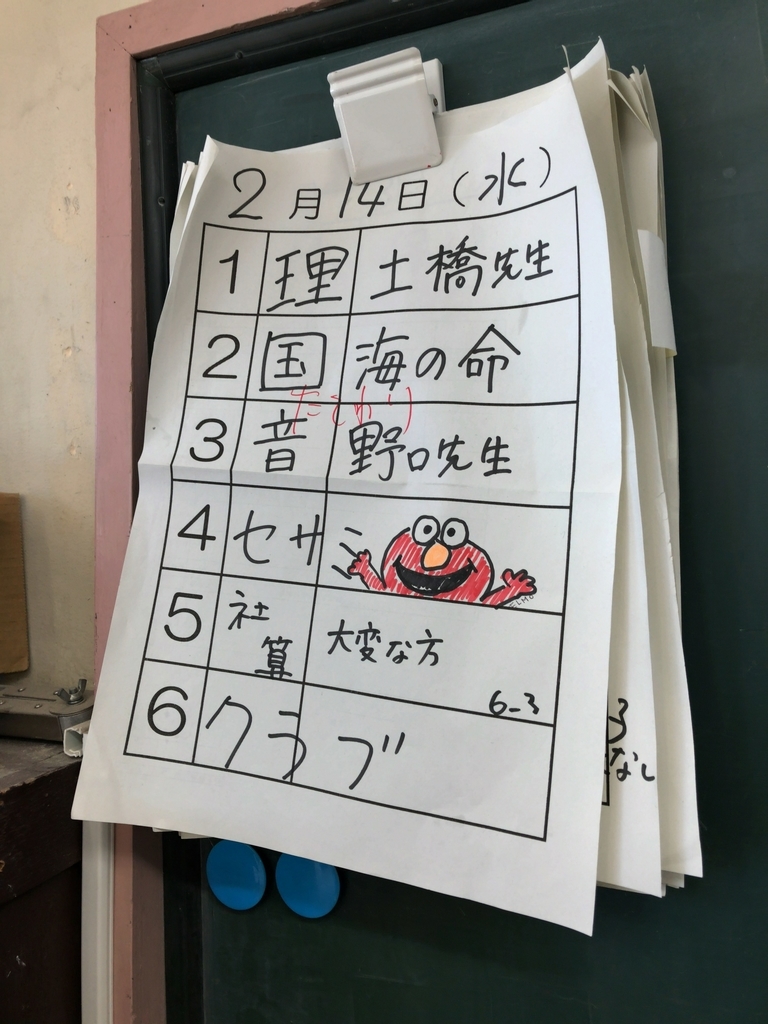 2月14日(水)
1 理 土橋先生
2 国 海の命
3 音 野口先生
4 セサミ
ELMO
5 社 算 大変な方
6-3
6 クラブ
3
なし